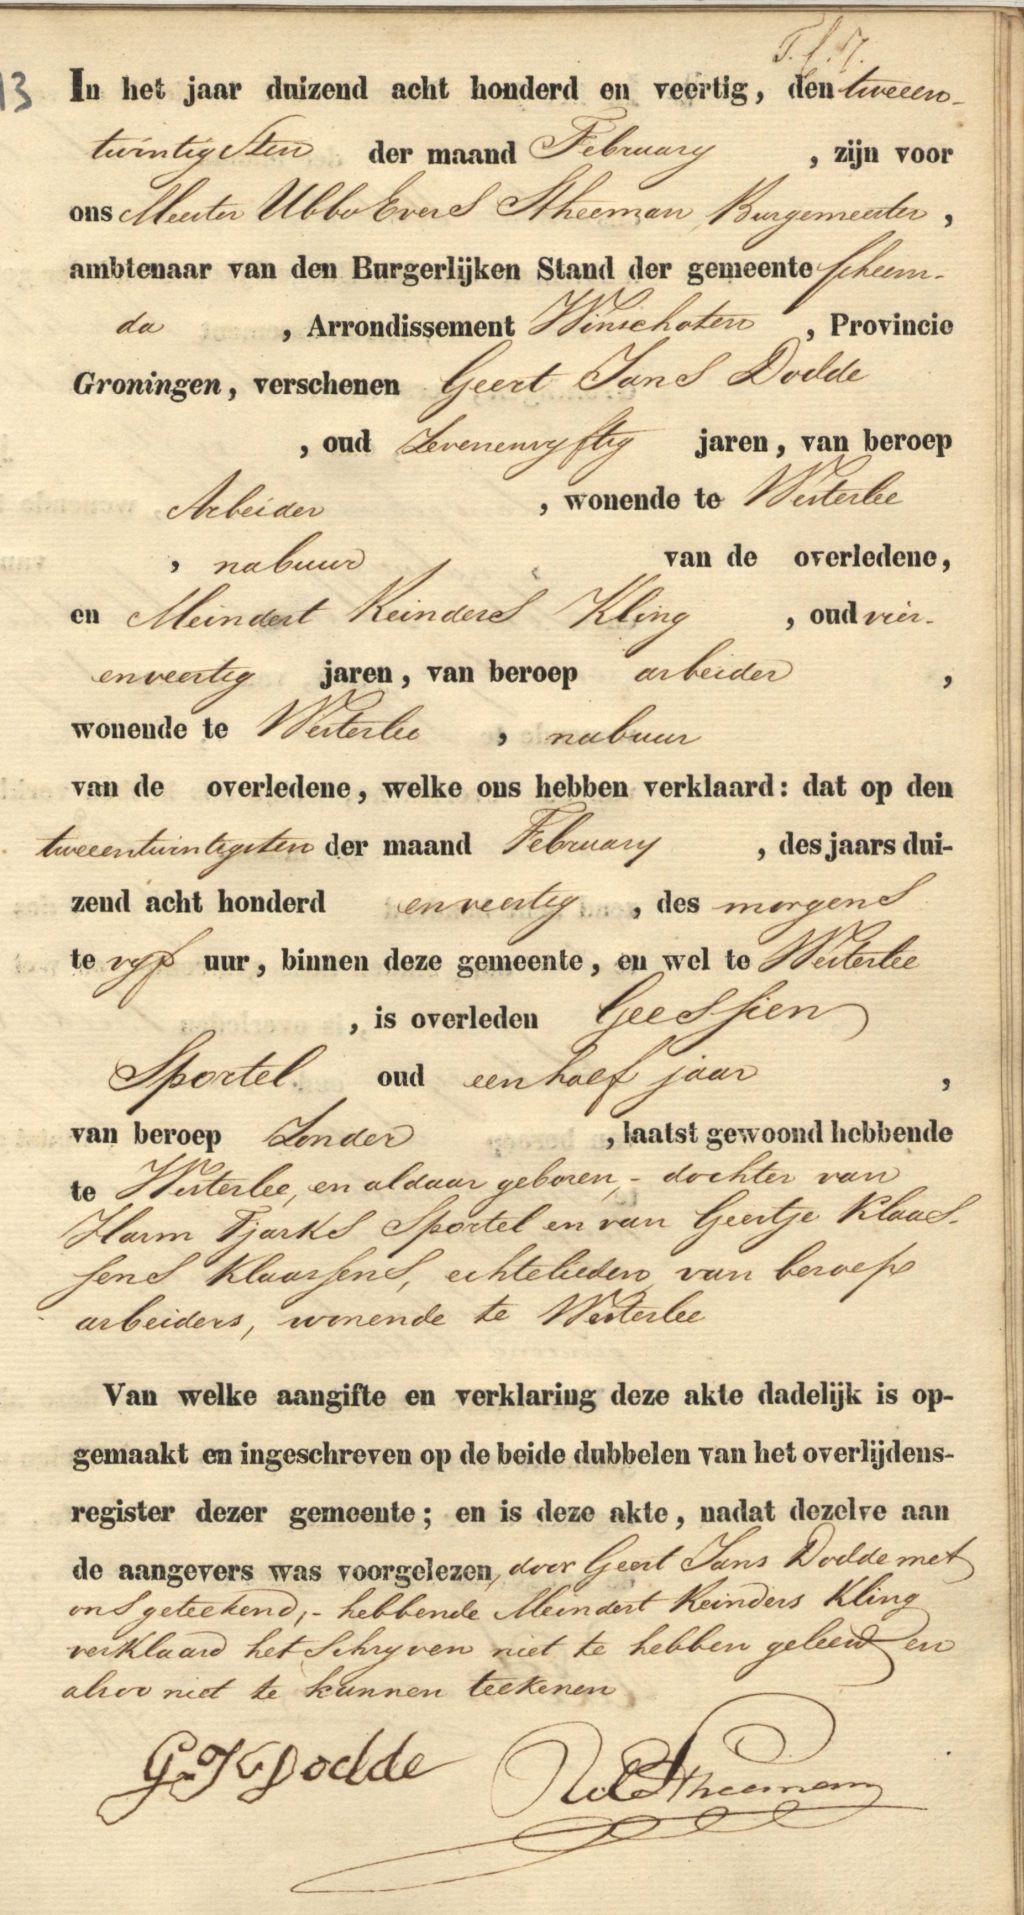 13
In het jaar duizend acht honderd en veertig, den tweeen-
twintigsten der maand February , zijn voor
ons Meester Ubbo Evers Stheeman Burgemeester ,
ambtenaar van den Burgerlijken Stand der gemeente Scheem-
da , Arrondissement Winschoten , Provincie
Groningen, verschenen Geert Jans Dodde
, oud Zevenenvyftig jaren, van beroep
Arbeider , wonende te Westerlee
, nabuur van de overledene,
en Meindert Reinders Kling , oud vier-
enveertig jaren, van beroep arbeider ,
wonende te Westerlee , nabuur
van de overledene, welke ons hebben verklaard: dat op den
tweeentwintigsten der maand February , des jaars dui-
zend acht honderd enveertig , des morgens
te vyf uur, binnen deze gemeente, en wel te Westerlee
, is overleden Geessien
Sportel oud een half jaar ,
van beroep Zonder , laatst gewoond hebbende
te Westerlee, en aldaar geboren, - dochter van
Harm Tjarks Sportel en van Geertje Klaas-
sens Klaassens, echtelieden, van beroep
arbeiders, wonende te Westerlee
Van welke aangifte en verklaring deze akte dadelijk is op-
gemaakt en ingeschreven op de beide dubbelen van het overlijdens-
register dezer gemeente; en is deze akte, nadat dezelve aan
de aangevers was voorgelezen, door Geert Jans Dodde met
ons geteekend, - hebbende Meindert Reinders Kling
verklaard het Schryven niet te hebben geleerd en
alsoo niet te kunnen teekenen
Dodde Stheeman